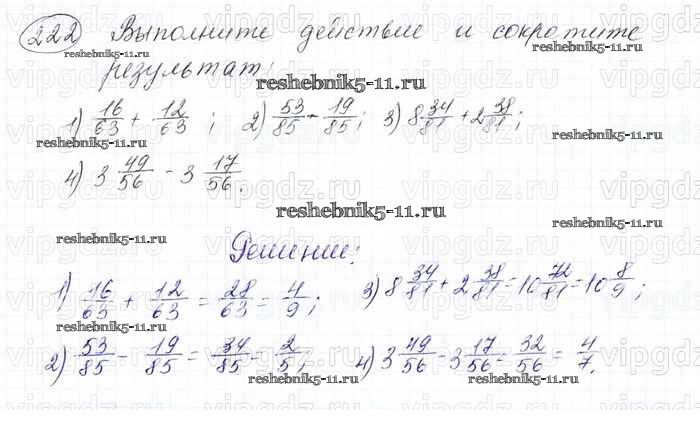 222 Выполните действие и сократите
результат:
1) 16/63 + 12/63 ; 2) 53/85 - 19/85 ; 3) 8 34/81 + 2 38/81 ;
4) 3 49/56 - 3 17/56 .
Решение:
1) 16/63 + 12/63 = 28/63 = 4/9 ; 3) 8 34/81 + 2 38/81 = 10 72/81 = 10 8/9 ;
2) 53/85 - 19/85 = 34/85 = 2/5 ; 4) 3 49/56 - 3 17/56 = 32/56 = 4/7 .
vipgdz.ru
reshebnik5-11.ru